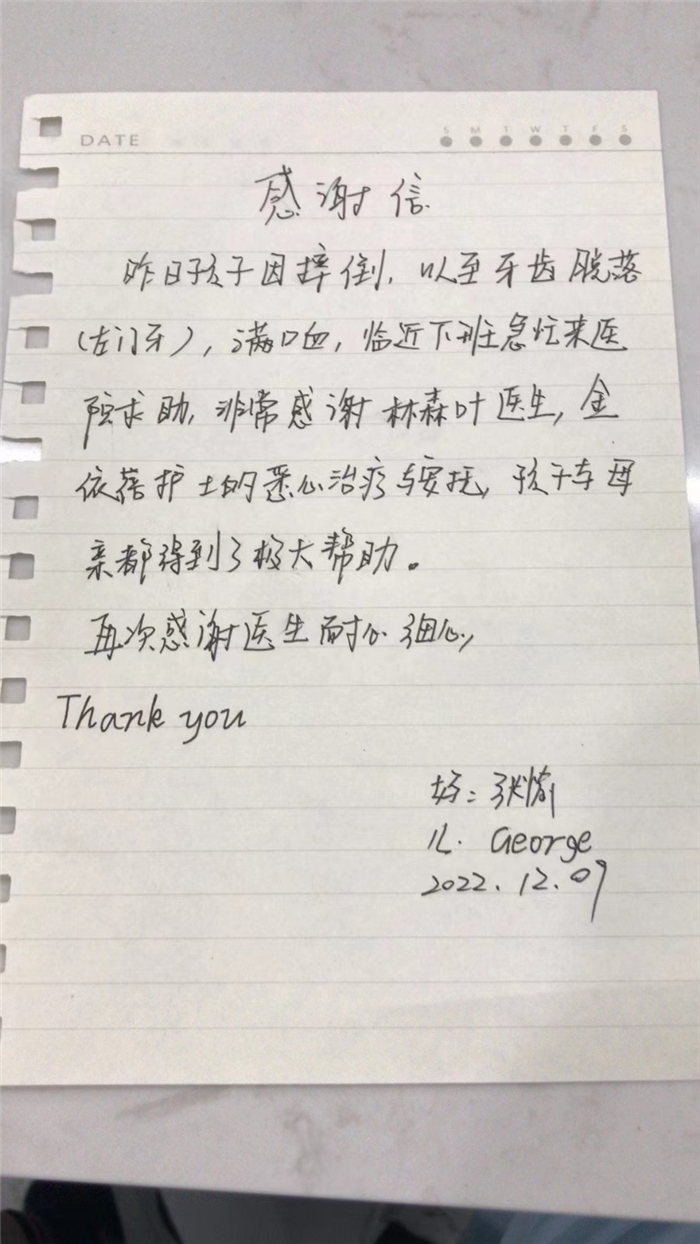 DATE
S M T W T F S
感谢信
昨日孩子因摔倒，以至牙齿脱落
（左门牙），满口血，临近下班急忙来医
院求助，非常感谢林森叶医生，金
依蓓护士的悉心治疗与安抚，孩子与母
亲都得到了极大帮助。
再次感谢医生耐心细心，
Thank you
妈：张愉
儿．George
2022.12.09